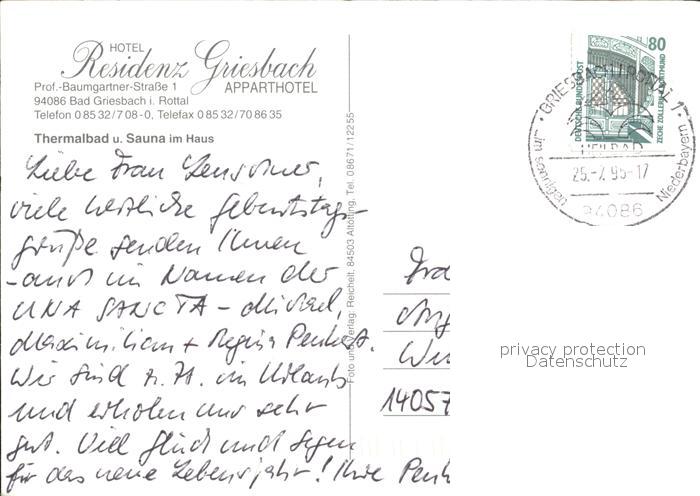 HOTEL
Residenz Griesbach
APPARTHOTEL
Prof.-Baumgartner-Straße 1
94086 Bad Griesbach i. Rottal
Telefon 0 85 32/7 08 - 0, Telefax 0 85 32/70 86 35
Thermalbad u. Sauna im Haus
Liebe Frau
viele herzliche Geburtstags-
grüße senden Ihnen
- auch im Namen der
UNA SANCTA - Michael,
Maximilian + Regina
Wir sind z. Zt. im Urlaub
und erholen uns sehr
gut. Viel Glück und Segen
für das neue Lebensjahr! Ihre
Foto und Verlag: Reichelt, 84503 Altötting, Tel. 08671/12255
80
DEUTSCHE BUNDESPOST
ZECHE ZOLLERN II DORTMUND
GRIESBACH I ROTTAL 1
HEILBAD
25.-7.95-17
...im sonnigen Niederbayern
94086
14057
privacy protection
Datenschutz